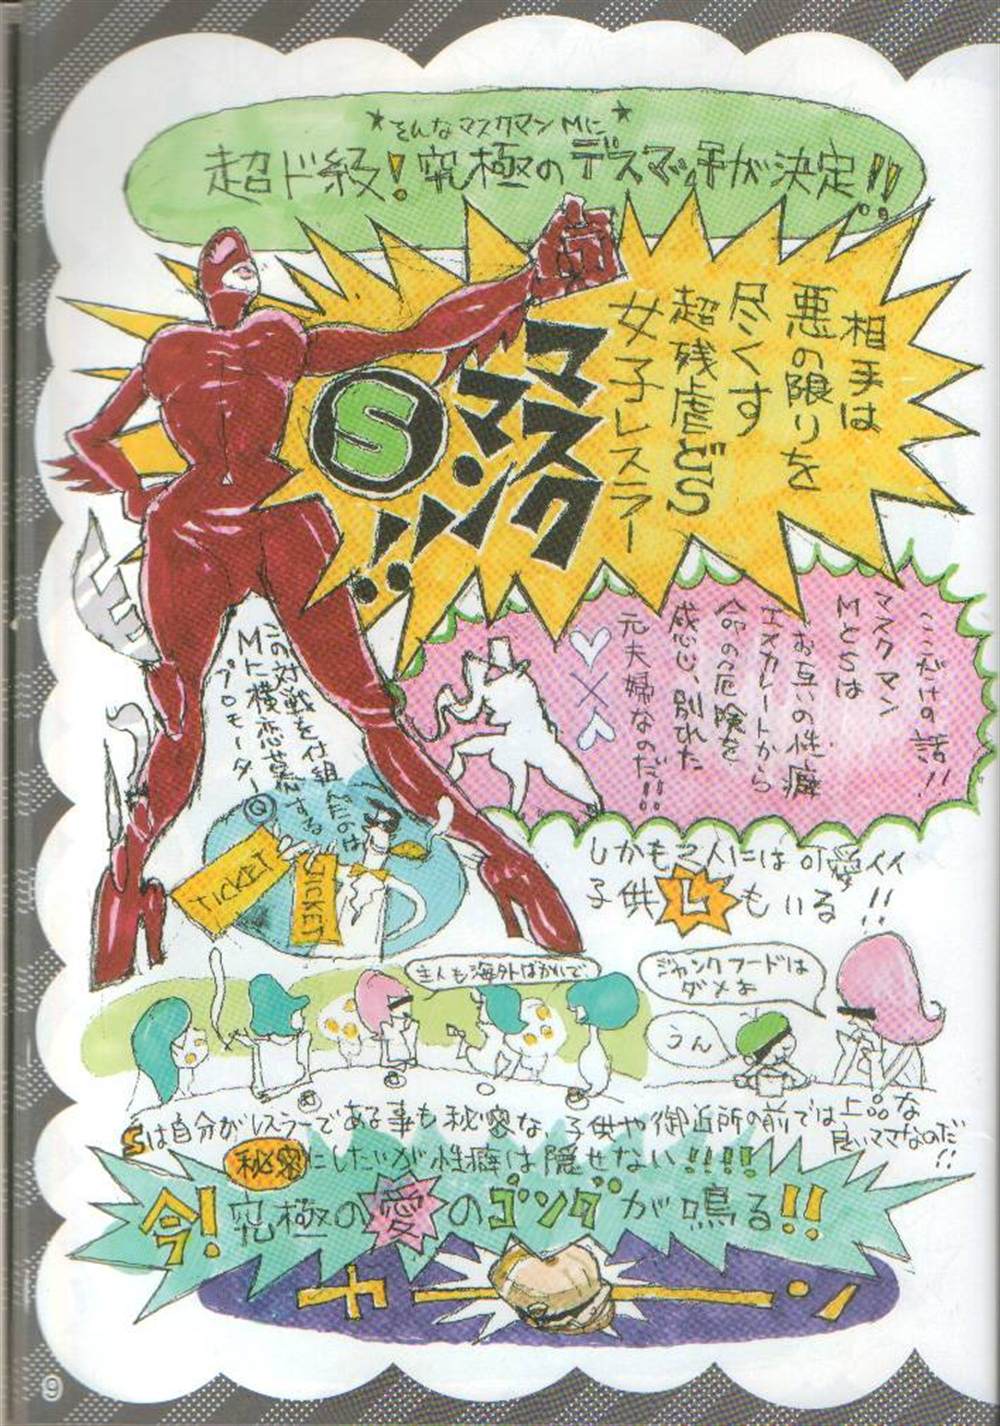 ★そんなマスクマンMに★
超ド級!究極のデスマッチが決定!!
相手は
悪の限りを
尽くす
超残虐どS
女子レスラー
マスク
マン
S!!
ここだけの話!!
マスクマン
MとSは
お互いの性癖
エスカレートから
命の危険を
感じ、別れた
元夫婦なのだ!!
この対戦を仕組んだのは
Mに横恋慕する
プロモーターQ
TICKET
TICKET
しかも二人には可愛イイ
子供Lもいる!!
主人も海外ばかりで
ジャンクフードは
ダメよ
うん
Sは自分がレスラーである事も秘密な、子供や御近所の前では上品な
良いママなのだ!!
秘密にしたいが性癖は隠せない!!!!
今!究極の愛のゴングが鳴る!!
チーーン
9